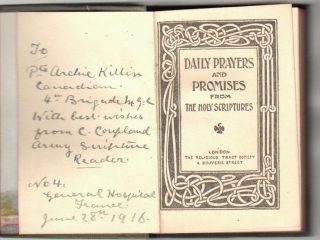 To
Pte Archie Killin
Canadian
4th Brigade M.G.C
With best wishes
from C. Coupland
Army Scripture
Reader.
No 4.
General Hospital
France.
June 28th 1916.
DAILY PRAYERS
AND
PROMISES
FROM
THE HOLY SCRIPTURES
LONDON
THE RELIGIOUS TRACT SOCIETY
4 BOUVERIE STREET